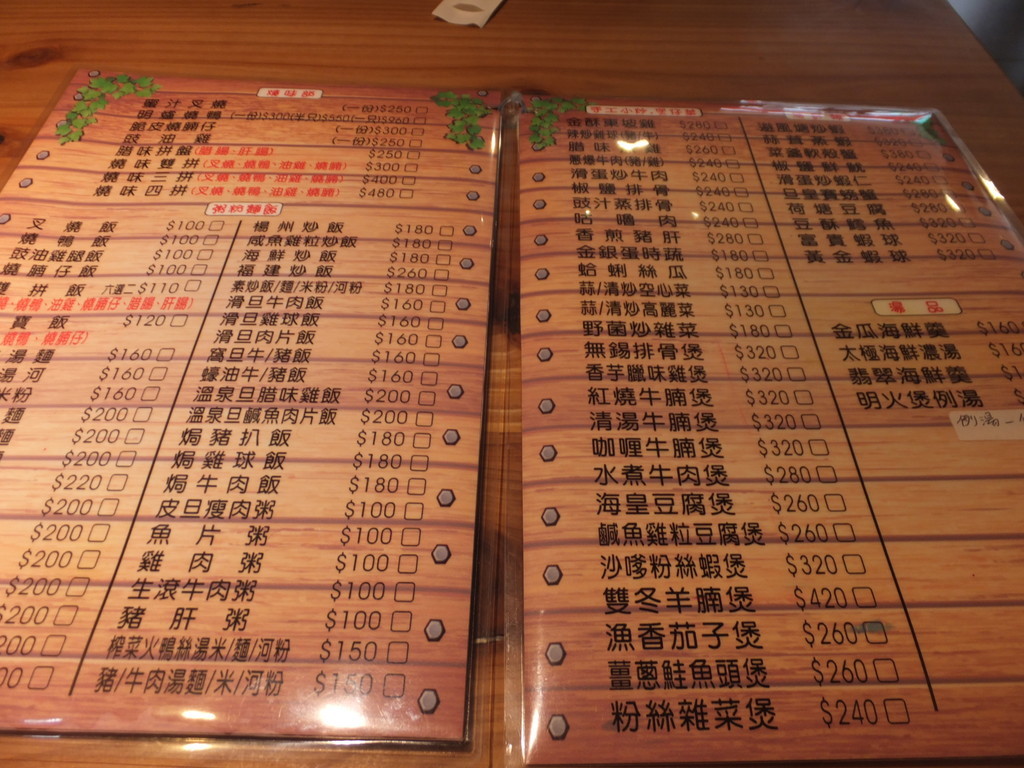 燒味部
蜜汁叉燒 (一份)$250
明爐燒鴨 (一份)$300(半只)$550(一只)$960
脆皮燒腩仔 (一份)$300
豉油雞 (一份)$250
腊味拼盤(腊腸、肝腸) $250
燒味雙拼(叉燒、燒鴨、油雞、燒腩) $300
燒味三拼(叉燒、燒鴨、油雞、燒腩) $400
燒味四拼(叉燒、燒鴨、油雞、燒腩) $480
粥粉麵飯
叉燒飯 $100
燒鴨飯 $100
豉油雞腿飯 $100
燒腩仔飯 $100
雙拼飯 六選二 $110
燒、燒鴨、油雞、燒腩仔、腊腸、肝腸)
寶飯 $120
燒鴨、燒腩仔)
湯麵 $160
湯河 $160
米粉 $160
麵 $200
麵 $200
$200
$220
$200
$200
$200
$200
$200
楊州炒飯 $180
咸魚雞粒炒飯 $180
海鮮炒飯 $180
福建炒飯 $260
素炒飯/麵/米粉/河粉 $180
滑旦牛肉飯 $160
滑旦雞球飯 $160
滑旦肉片飯 $160
窩旦牛/豬飯 $160
蠔油牛/豬飯 $160
溫泉旦腊味雞飯 $200
溫泉旦鹹魚肉片飯 $200
焗豬扒飯 $180
焗雞球飯 $180
焗牛肉飯 $180
皮旦瘦肉粥 $100
魚片粥 $100
雞肉粥 $100
生滾牛肉粥 $100
豬肝粥 $100
榨菜火鴨絲湯米/麵/河粉 $150
豬/牛肉湯麵/米/河粉 $150
金酥東坡雞 $280
$240
腊味 $260
蔥爆牛肉(豬/雞) $240
滑蛋炒牛肉 $240
椒鹽排骨 $240
豉汁蒸排骨 $240
咕嚕肉 $240
香煎豬肝 $280
金銀蛋時蔬 $180
蛤蜊絲瓜 $180
蒜/清炒空心菜 $130
蒜/清炒高麗菜 $130
野菌炒雜菜 $180
無錫排骨煲 $320
香芋臘味雞煲 $320
紅燒牛腩煲 $320
清湯牛腩煲 $320
咖喱牛腩煲 $320
水煮牛肉煲 $280
海皇豆腐煲 $260
鹹魚雞粒豆腐煲 $260
沙嗲粉絲蝦煲 $320
雙冬羊腩煲 $420
漁香茄子煲 $260
薑蔥鮭魚頭煲 $260
粉絲雜菜煲 $240
避風塘炒蝦
椒鹽鮮魷 $240
滑蛋炒蝦仁 $240
$280
荷塘豆腐 $280
豆酥鱈魚 $320
富貴蝦球 $320
黃金蝦球 $320
湯品
金瓜海鮮羹 $160
太極海鮮濃湯
翡翠海鮮羹
明火煲例湯
例湯一